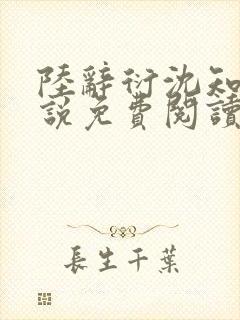 陸辭衍沈知
說免費閱讀
長生千葉